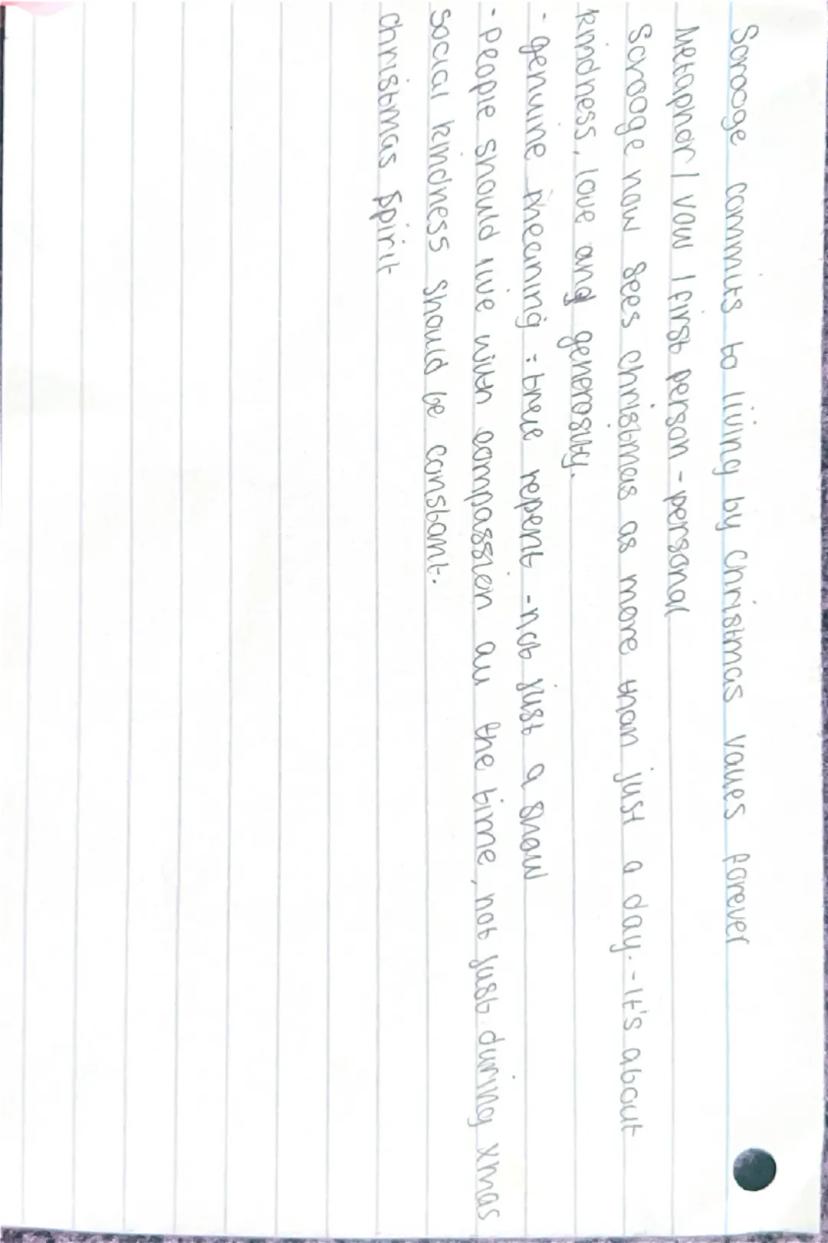 Scrooge commits to living by Christmas values forever
Metaphor / vow / first person - personal
Scrooge now sees Christmas as more than just a day. - It's about
kindness, love and generosity.
- genuine meaning : true repent - not just a show
- People should live with compassion all the time, not just during xmas
Social kindness should be constant.
Christmas Spirit